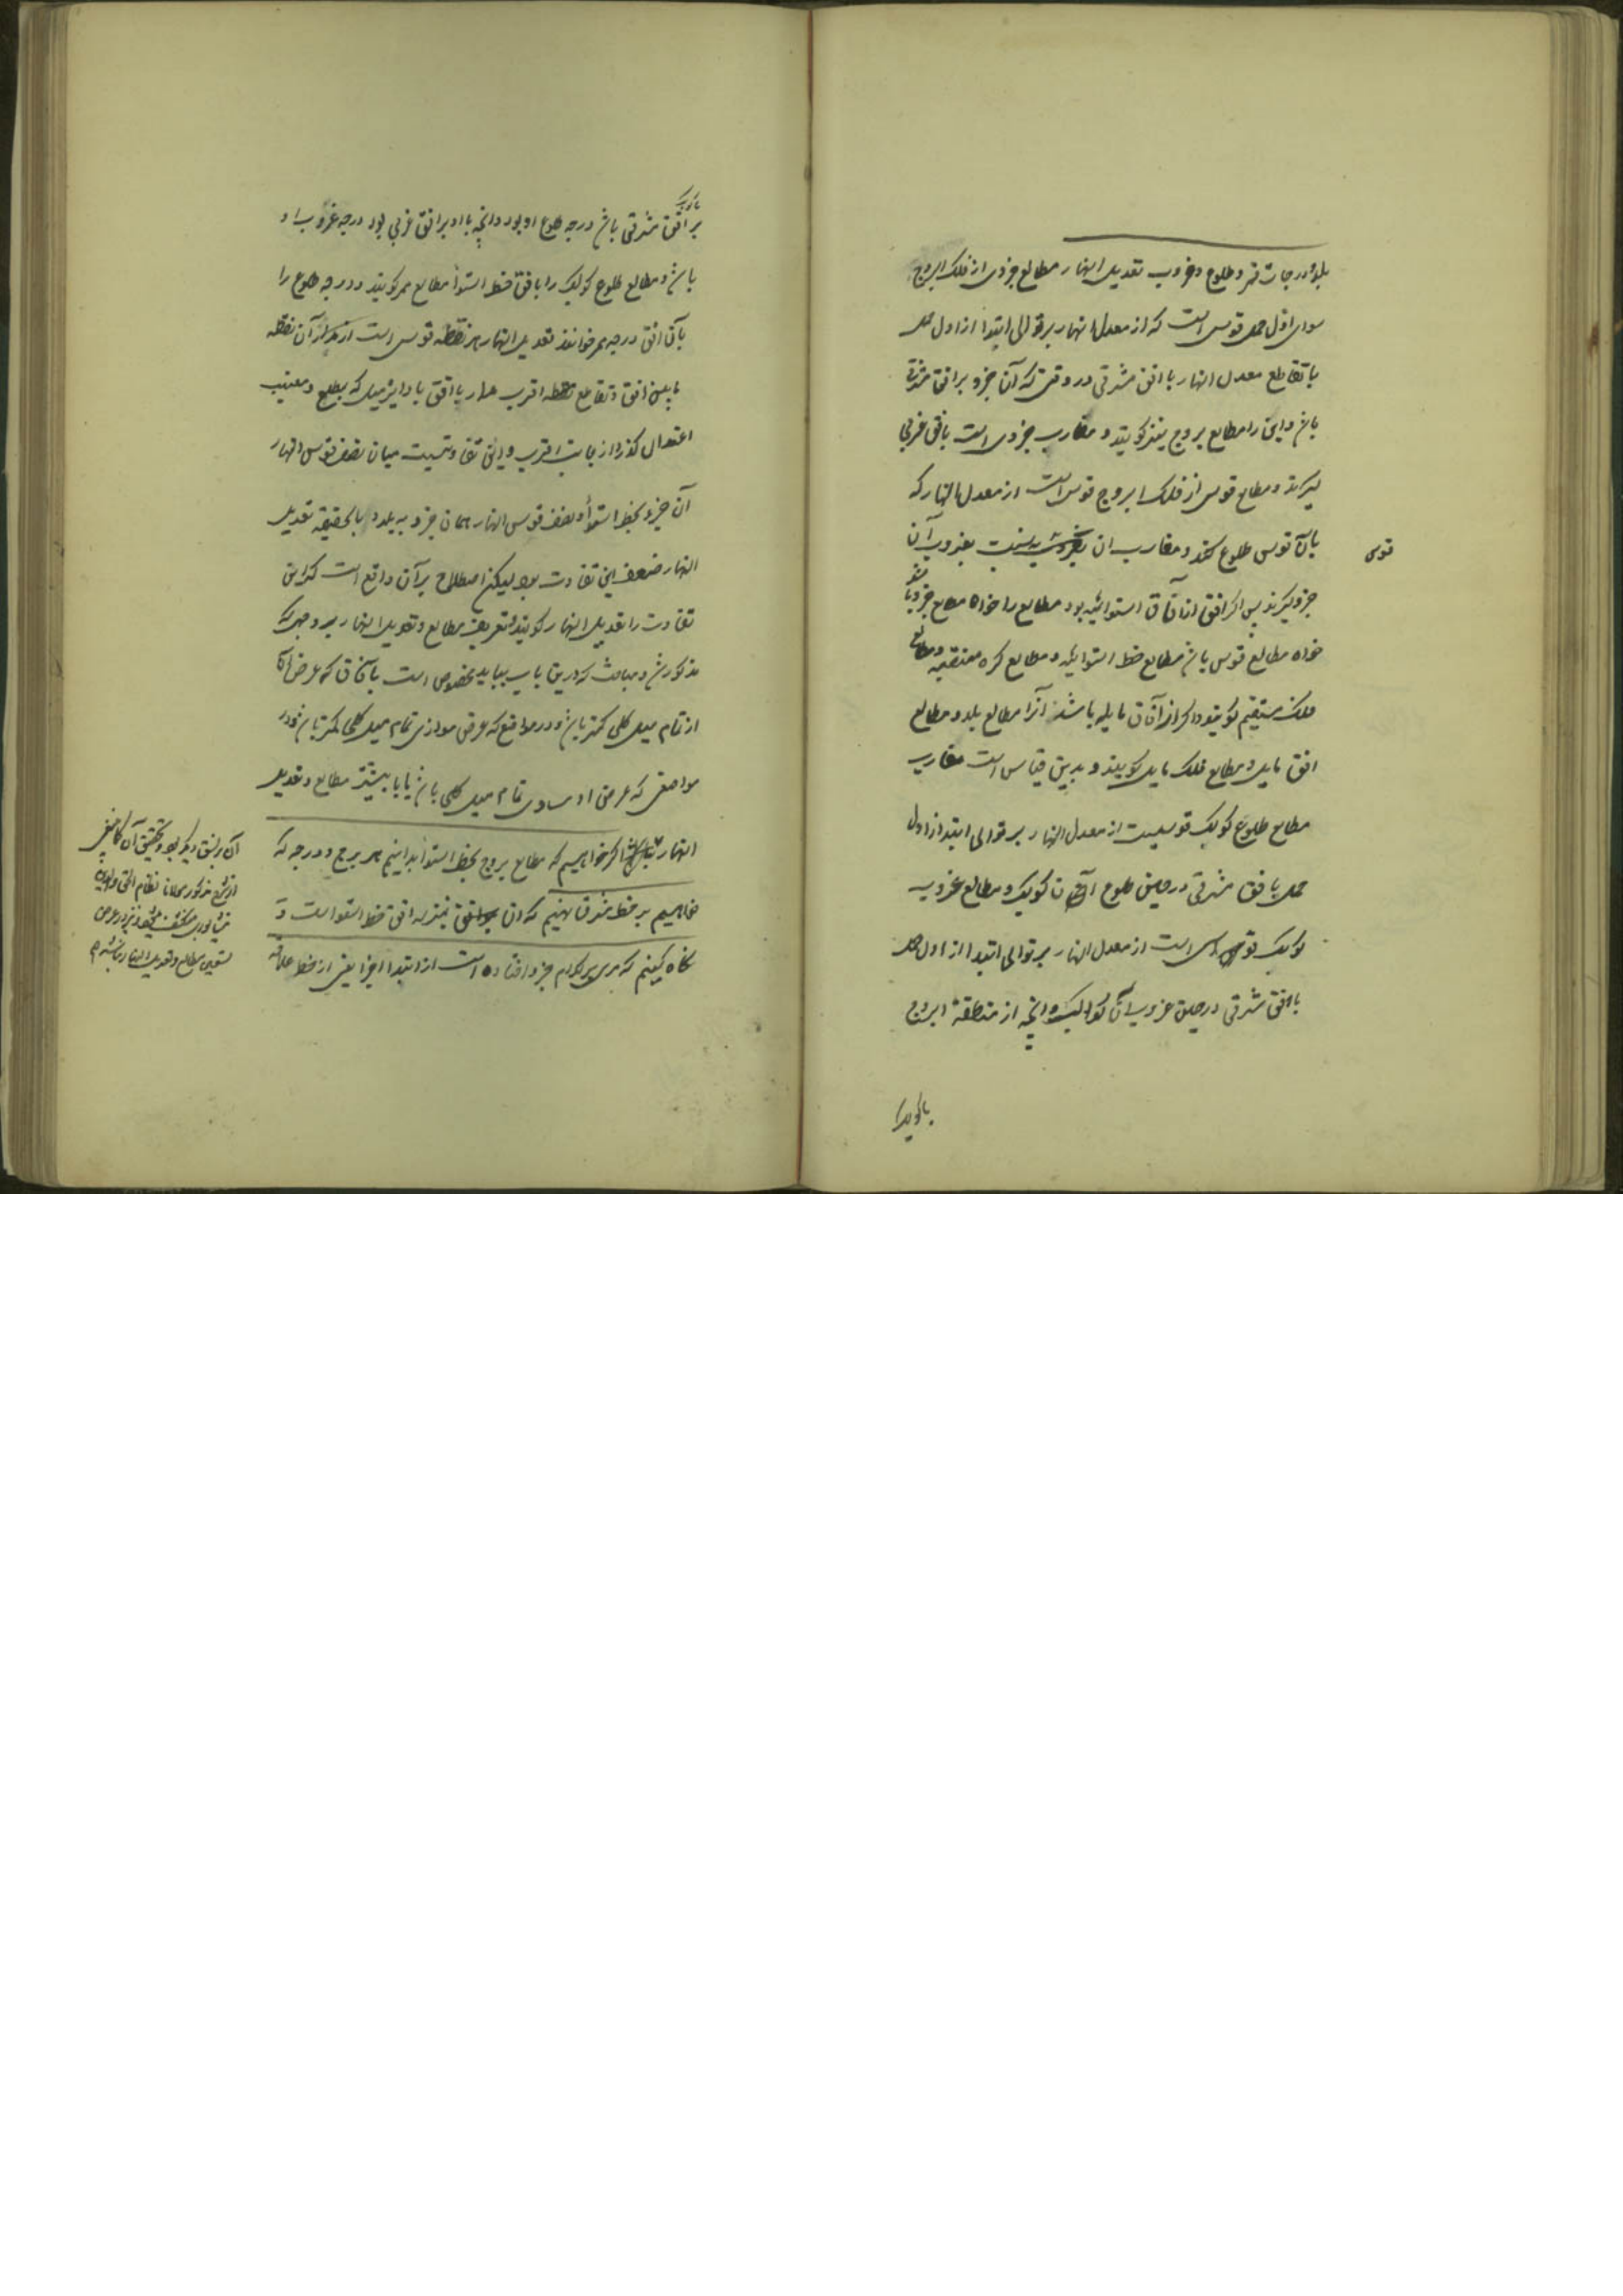 بلد و درجات ممر و طلوع و غروب تعدیل النهار مطالع جزوی از فلک البروج
سوای اول حمل قوسی است که از معدل النهار بر توالی ابتدا از اول حمل
با تقاطع معدل النهار با افق مشرقی در وقتی که آن جزو بر افق مشرق
باشد و این را مطالع بروج نیز کویند و مغارب جزوی است بافق غربی
کیرند و مطالع قوسی از فلک البروج قوسی است از معدل النهار که
با آن قوس طلوع کند و مغارب ان به نسبت بغروب آن
قوس
جزو کیرند پس اکر افق از آفاق استوائیه بود مطالع را خواه مطالع جزو باشد
خواه مطالع قوس باشد مطالع خط استوا کویند و مطالع کره منتصبه و مطالع
فلک مستقیم کویند و اکر از آفاق مایله باشد آنرا مطالع بلد و مطالع
افق مایل و مطالع فلک مایل کویند و بدین قیاس است مغارب
مطالع طلوع کوکب قوسیست از معدل النهار بر توالی ابتدا از اول
حمل بافق مشرقی در حین طلوع آن کوکب و مطالع غروب
کوکب قوسی است از معدل النهار بر توالی ابتدا از اول حمل
با افق شرقی در حین غروب آن کوکب و انچه از منطقة البروج
با کوکب
بر افق شرقی باشد درجه طلوع او بود و انچه با او بر افق غربی بود درجه غروب او
باشد و مطالع طلوع کوکب را بافق خط استوا مطالع ممر کویند و درجه طلوع را
بآن افق درجه ممر خوانند تعدیل النهار هر نقطه قوسی است از مدار آن نقطه
مابین افق و تقاطع اقرب مدار با افق با دایره میل که بمطلع و مغیب
اعتدال کذرد از جانب اقرب و این تفاوتیست میان نصف قوس النهار
آن جزو بخط استوا و نصف قوس النهار همان جزو به بلد و بالحقیقه تعدیل
النهار ضعف این تفاوت بود لیکن اصطلاح بر آن واقع است که این
تفاوت را تعدیل النهار کویند و تعریف مطالع و تعدیل النهار بر وجهی که
مذکور شد و مباحث که درین باب بیاید مخصوص است بآفاق که عرض آن
از تمام میل کلی کمتر باشد و در مواضع که عرض موازی تمام میل کلی کمتر باشد و در
مواضعی که عرض او مساوی تمام میل کلی باشد یا بیشتر مطالع و تعدیل
النهار اکر خواهیم که مطالع بروج بخط استوا بدانیم هر برج و درجه که
خواهیم بر خط مشرق نهیم که آن بمنزله افق خط استوا است و
نکاه کنیم که مری بر کدام جزو افتاده است از ابتدا اجزا یعنی از خط علاقه
آن بر نسق دیکر بود و تحقیق آن کما ینبغی
از شرح مذکور مولانا نظام الحق والدین
نیشابوری منکشف میشود و نیز در عرض
تسعین مطالع و تعدیل النهار نباشد